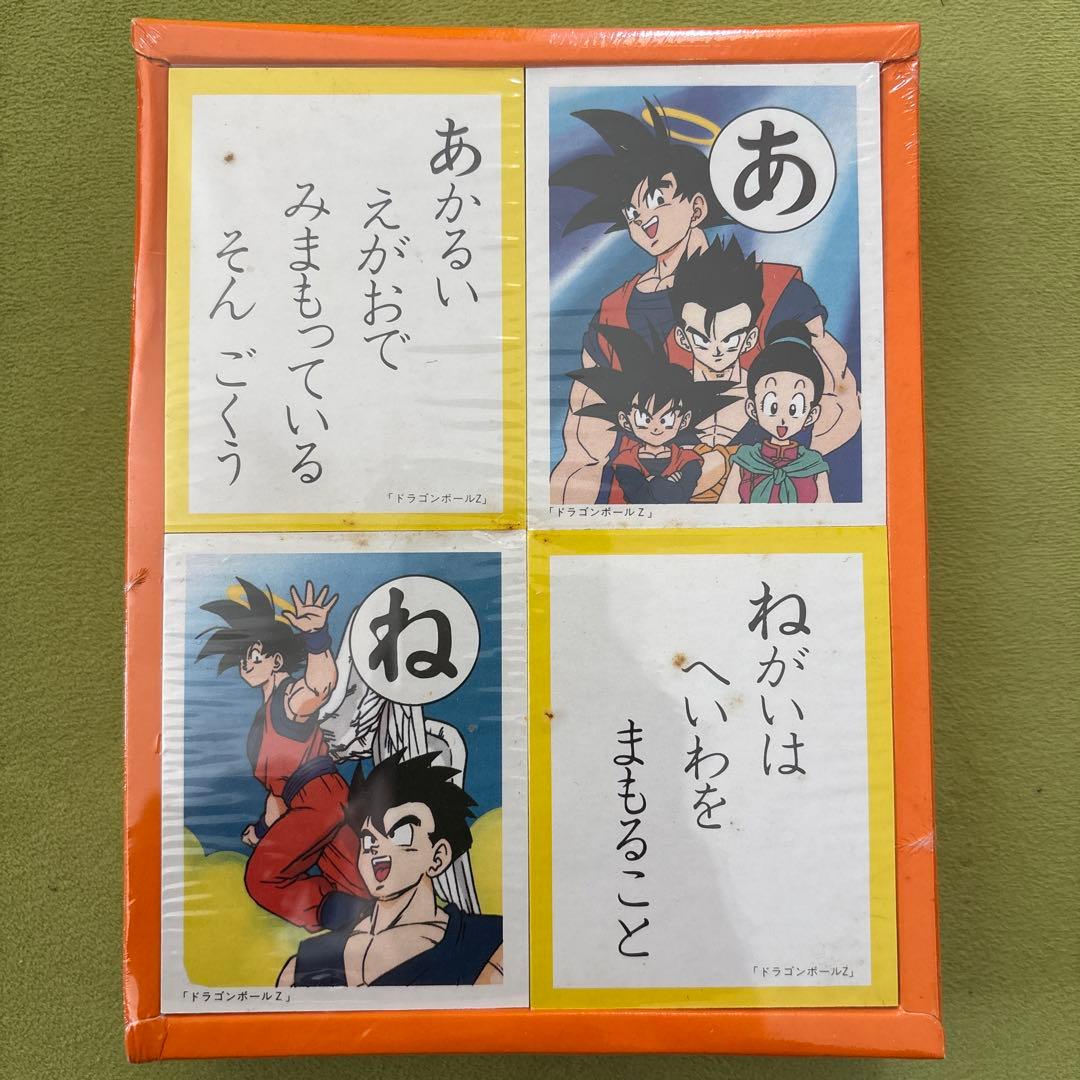 あかるい
えがおで
みまもっている
そん ごくう
「ドラゴンボールZ」
あ
「ドラゴンボールZ」
ね
「ドラゴンボールZ」
ねがいは
へいわを
まもること
「ドラゴンボールZ」